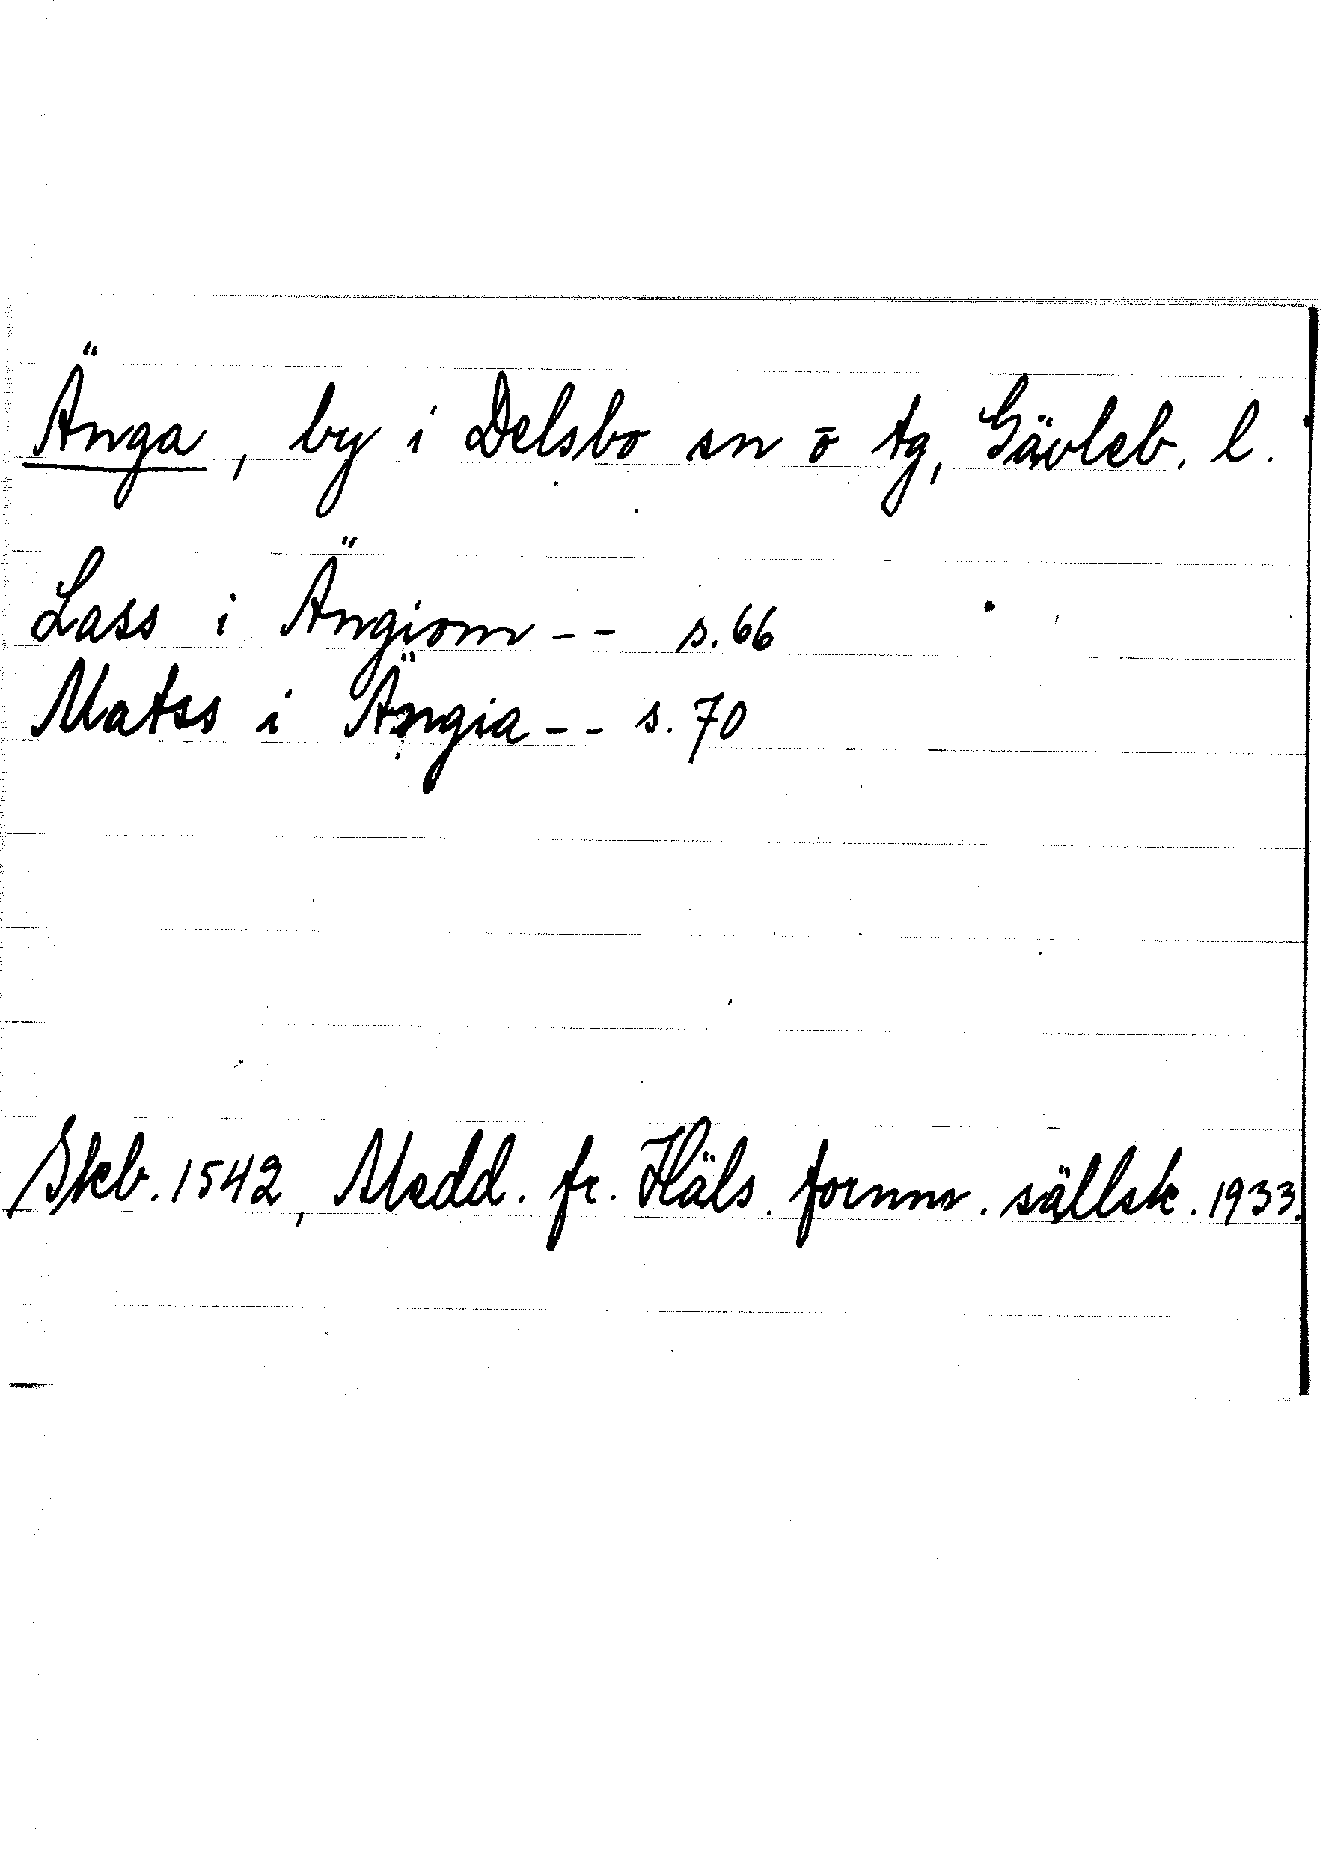 Änga, by i Delsbo sn o tg, Gävleb. l.
Lass i Ängiom -- s. 66
Matss i Ängia -- s. 70
Skb. 1542, Medd. fr. Häls. fornm. sällsk. 1933.